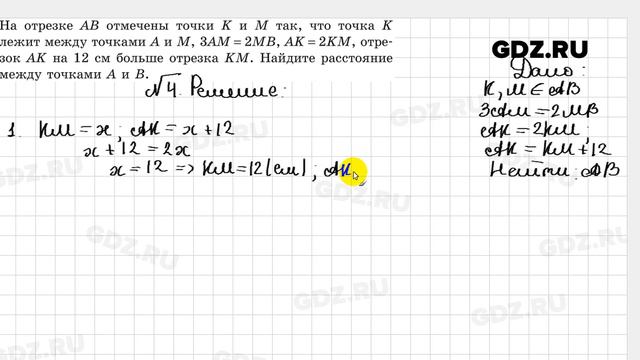 На отрезке AB отмечены точки K и M так, что точка K
лежит между точками A и M, 3AM = 2MB, AK = 2KM, отре-
зок AK на 12 см больше отрезка KM. Найдите расстояние
между точками A и B.
GDZ.RU
Дано:
K, M ∈ AB
3AM = 2MB
AK = 2KM;
AK = KM + 12
Найти: AB
№4. Решение:
1. KM = x; AK = x + 12
x + 12 = 2x
x = 12 => KM = 12 (см); AK
GDZ.RU
GDZ.RU
GDZ.RU
GDZ.RU
GDZ.RU
GDZ.RU
GDZ.RU